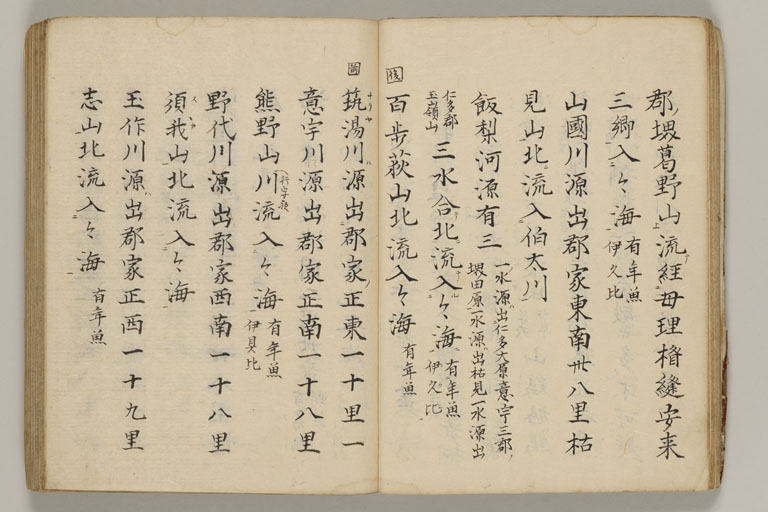 郡堺葛野山流経母理楯縫安来
三郷入々海 有年魚
伊久比
山國川源出郡家東南卅八里枯
見山北流入伯太川
飯梨河源有三 一水源出仁多大原意宇三郡
堺田原一水源出枯見一水源出
仁多郡
玉嶺山 三水合北流入々海 有年魚
伊久比
筑湯川源出郡家正東一十里一
百歩荻山北流入々海 有年魚
意宇川源出郡家正南一十八里
熊野山川流入々海 有年魚
伊具比
野代川源出郡家西南一十八里
須我山北流入々海
玉作川源出郡家正西一十九里
志山北流入々海 有年魚